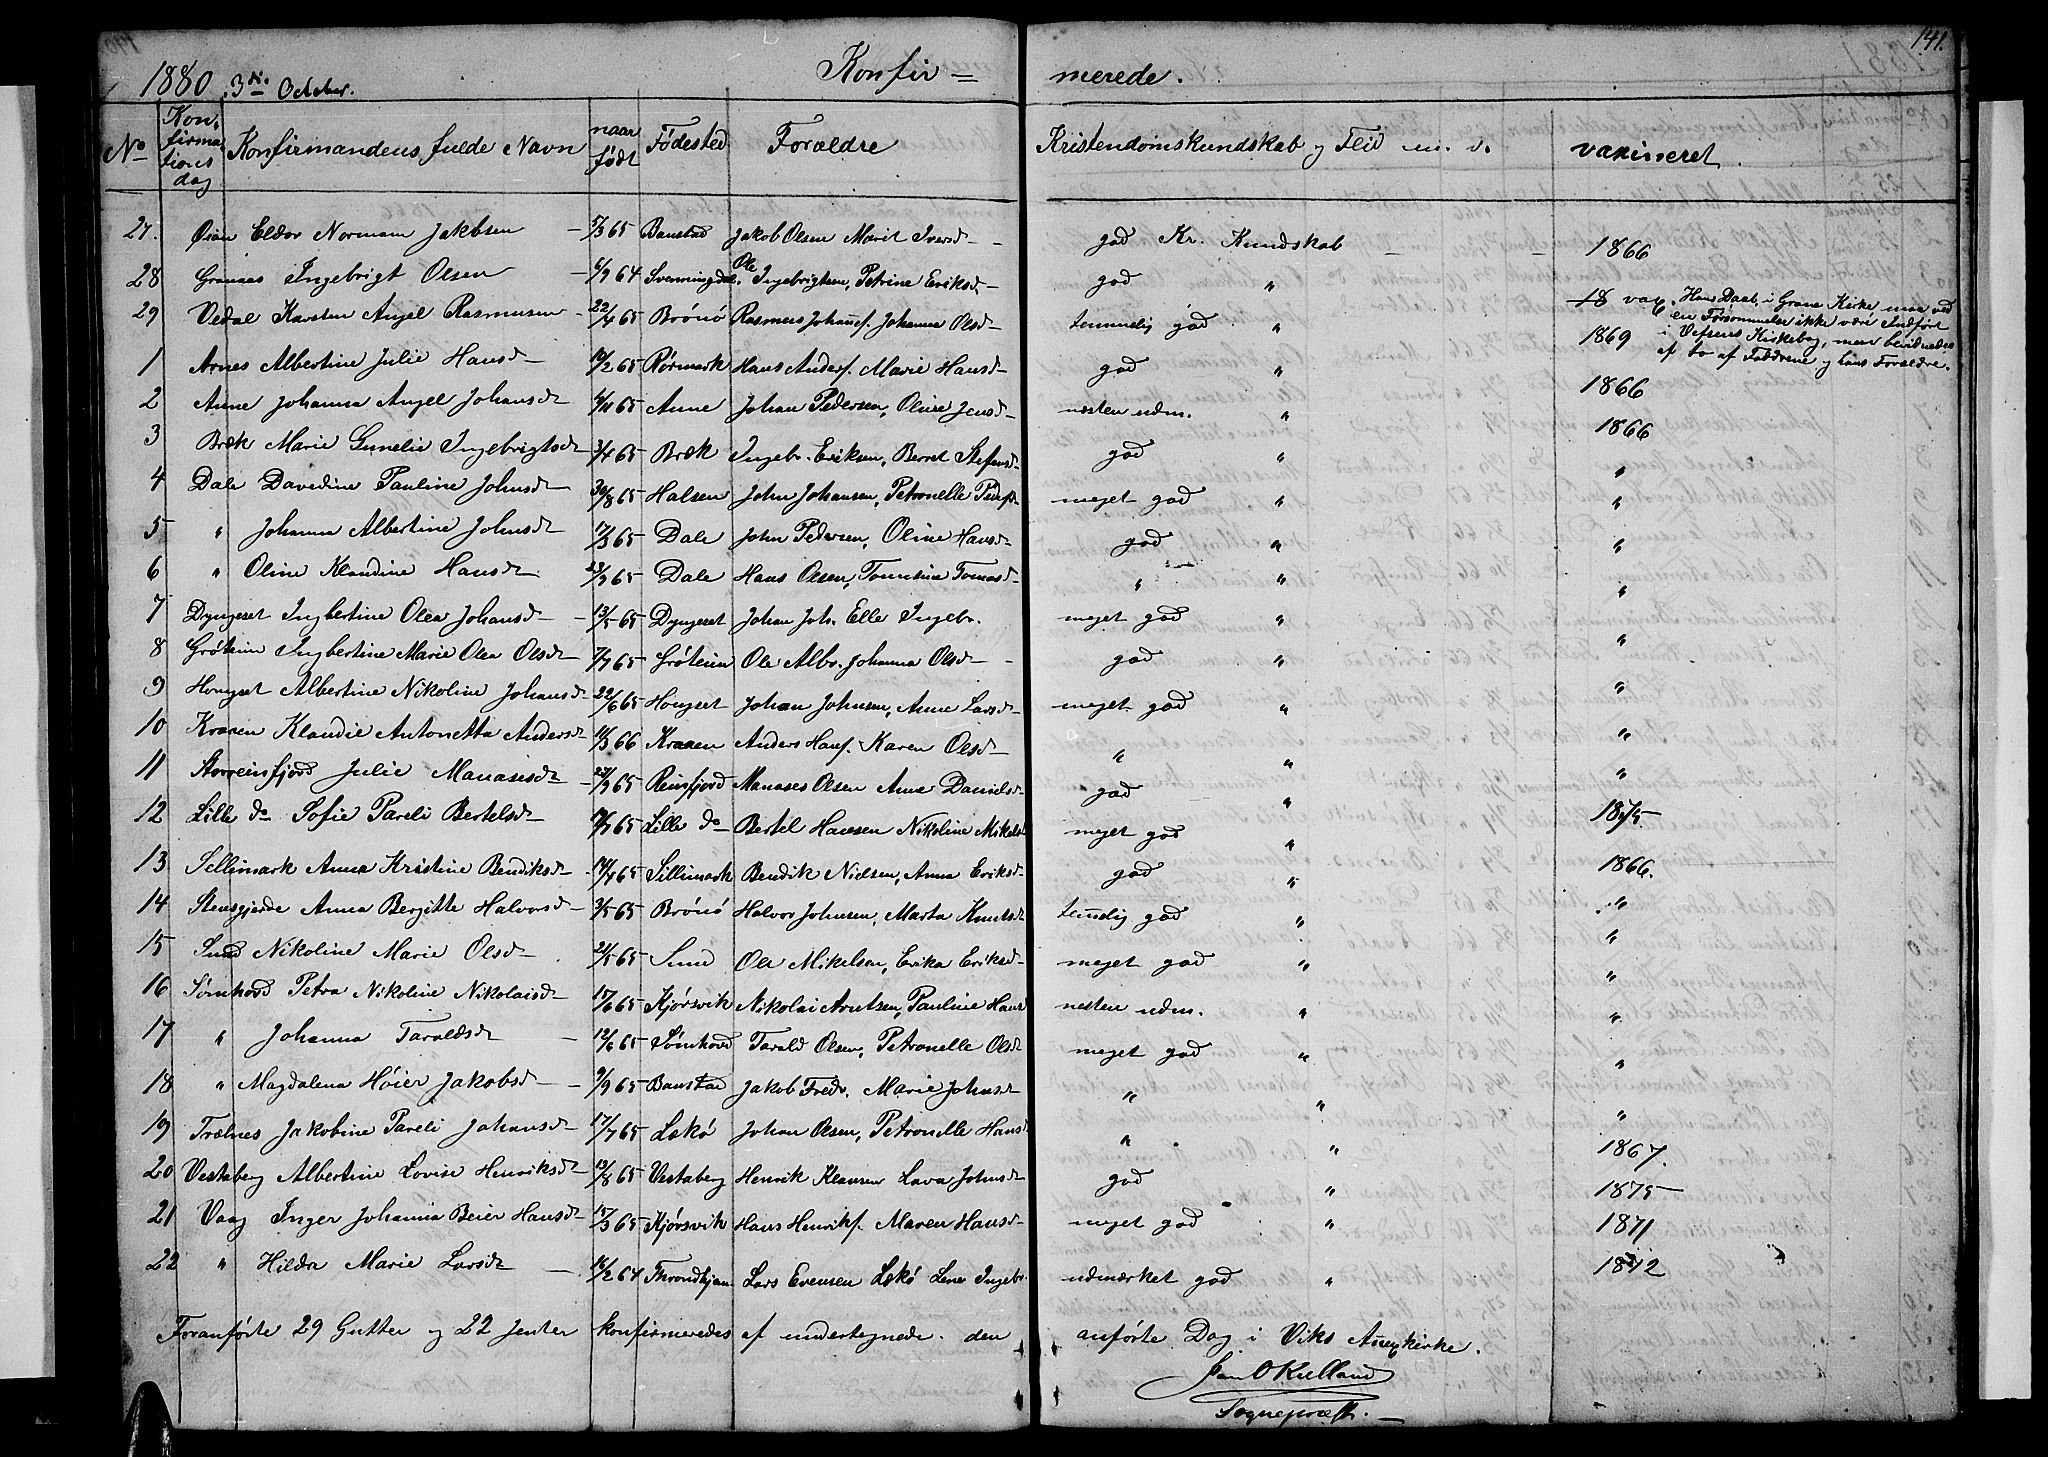 140
141.
1880 3die October. Konfir= merede.
No Konfirmationsdag Konfirmandens fulde Navn naar født Fødested Forældre Kristendomskundskab og Flid m. v. vaxineret.
27. Øian Eldor Norman Jakobsen – 5/3 65 Banstad Jakob Olsen Marit Iversd – god Kr. Kundskab – – 1866
28 Granaas Ingebrigt Olsen – 6/9 64 Svenningdal. Ole Ingebrigtsen, Petrine Eriksd – god "
29 Vedal Karsten Angel Rasmussen – 22/4 65 Brønø Rasmus Johansf. Johanna Olsd – temmelig god " 18 vax. Hans Daab i Grane Kirke maa ved en Forsømmelse ikke være Indført i Vefsens Kirkebog, men bevidnedes af to af Fadderne og hans Forældre.
1 Arnes Albertine Julie Hansd – 10/2 65 Rørmark Hans Andersf. Marie Hansd – god " 1869
2 Aune Johanna Angel Johansd 6/11 65 Aune Johan Pedersen, Oline Jensd – nesten udm. " 1866
3 Bræk Marie Gunelie Ingebrigtsd 3/4 65 Bræk Ingebr. Eriksen, Berret Stefensd – god " 1866
4 Dale Davidine Pauline Johnsd 30/8 65 Halsen John Johansen, Petronelle Pedersd meget god " "
5 " Johanna Albertine Johnsd 17/3 65 Dale John Pedersen, Oline Hansd – god " "
6 " Oline Klaudine Hansd 23/9 65 Dale Hans Olsen, Tomine Tomasd – " " "
7 Dyngeset Ingbertine Olea Johansd – 13/5 65 Dyngeset Johan Joh. Elle Ingebr. meget god " "
8 Grøteim Ingbertine Marie Olea Olsd – 7/7 65 Grøteim Ole Albr. Johanna Olsd – god " "
9 Hongset Albertine Nikoline Johansd – 22/6 65 Hongset Johan Johnsen, Anne Larsd – meget god " "
10 Kraaen Klaudie Antonetta Andersd – 11/3 66 Kraaen Anders Hansf. Karen Olsd – " " "
11 Storreinfjord Julie Manasisd – 27/9 65 Reinfjord Manases Olsen Anne Danielsd – god " "
12 Lille do Sofie Pareli Bertelsd – 10/7 65 Lille do – Bertel Hansen Nikoline Mikelsd meget god " 1875.
13 Sellimark Anna Kristine Bendiksd – 14/4 65 Sillimark Bendik Nielsen, Anna Eriksd – god " 1866.
14 Stensgjerde Anna Bergitte Halvorsd – 3/5 65 Brønø Halvor Johnsen, Marta Knutsd temelig god " "
15 Sund Nikoline Marie Olsd – 21/5 65 Sund Ole Mikelsen, Erika Eriksd – meget god " "
16 Sømhovd Petra Nikoline Nikolaisd – 15/6 65 Kjørsvik Nikolai Arntsen, Pauline Hans nesten udm. " "
17 " Johanna Taraldsd – 12/6 65 Sømhovd Tarald Olsen, Petronelle Olsd meget god " "
18 " Magdalena Høier Jakobsd – 9/9 65 Banstad Jakob Fredr. Marie Johnsd " " "
19 Trælnes Jakobine Pareli Johansd – 17/7 65 Lekø Johan Olsen, Petronelle Hans " " "
20 Vestaberg Albertine Lovise Henriksd – 19/8 65 Vestaberg Henrik Klausen Lava Johnsd god " 1867.
21 Vaag Inger Johanna Beier Hansd – 15/3 65 Kjørsvik Hans Henrikf. Maren Hansd – meget god " 1875
22 " Hilda Marie Larsd – 16/2 64 Throndhjem Lars Evensen Lekø Lene Ingebr. udmærket god " 1871
1872
Foranførte 29 Gutter og 22 Jenter konfirmeredes af undertegnede den anførte Dag i Viks Annexkirke.
Jan O Kielland
Sognepræst. –